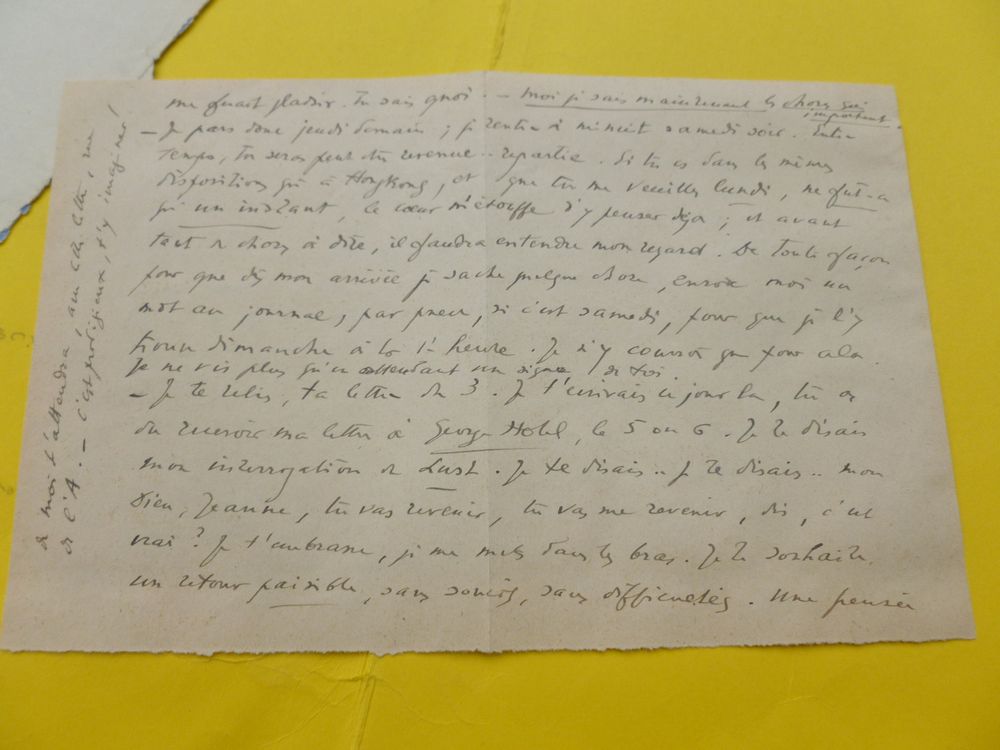 me ferait plaisir. Tu sais quoi. — Moi je sais maintenant les choses qui
importent.
— Je pars donc jeudi demain ; je rentre à minuit samedi soir. Entre
temps, tu seras peut être revenue.. repartie. Si tu es dans les mêmes
dispositions qu'à HongKong, et que tu me veuilles lundi, ne fût-ce
qu'un instant, le cœur m'étouffe d'y penser déjà ; et avant
tant de choses à dire, il faudra entendre mon regard. De toute façon
pour que dès mon arrivée je sache quelque chose, envoie moi un
mot au journal, par pneu, si c'est samedi, pour que je l'y
trouve dimanche à la 1re heure. Je n'y courrai que pour cela.
Je ne vis plus qu'en attendant un signe de toi.
— Je te relis, ta lettre du 3. Je t'écrivais ce jour là, tu as
du recevoir ma lettre à George Hotel, le 5 ou 6. Je te disais
mon interrogation de Lust. Je te disais.. Je te disais.. mon
Dieu, Jeanne, tu vas revenir, tu vas me revenir, dis, c'est
vrai ? Je t'embrasse, je me mets dans tes bras. Je te souhaite
un retour paisible, sans soucis, sans difficultés. Une pensée
de moi t'attendra, avec cette lettre, rue
de l'A. — C'est prodigieux, d'y imaginer !